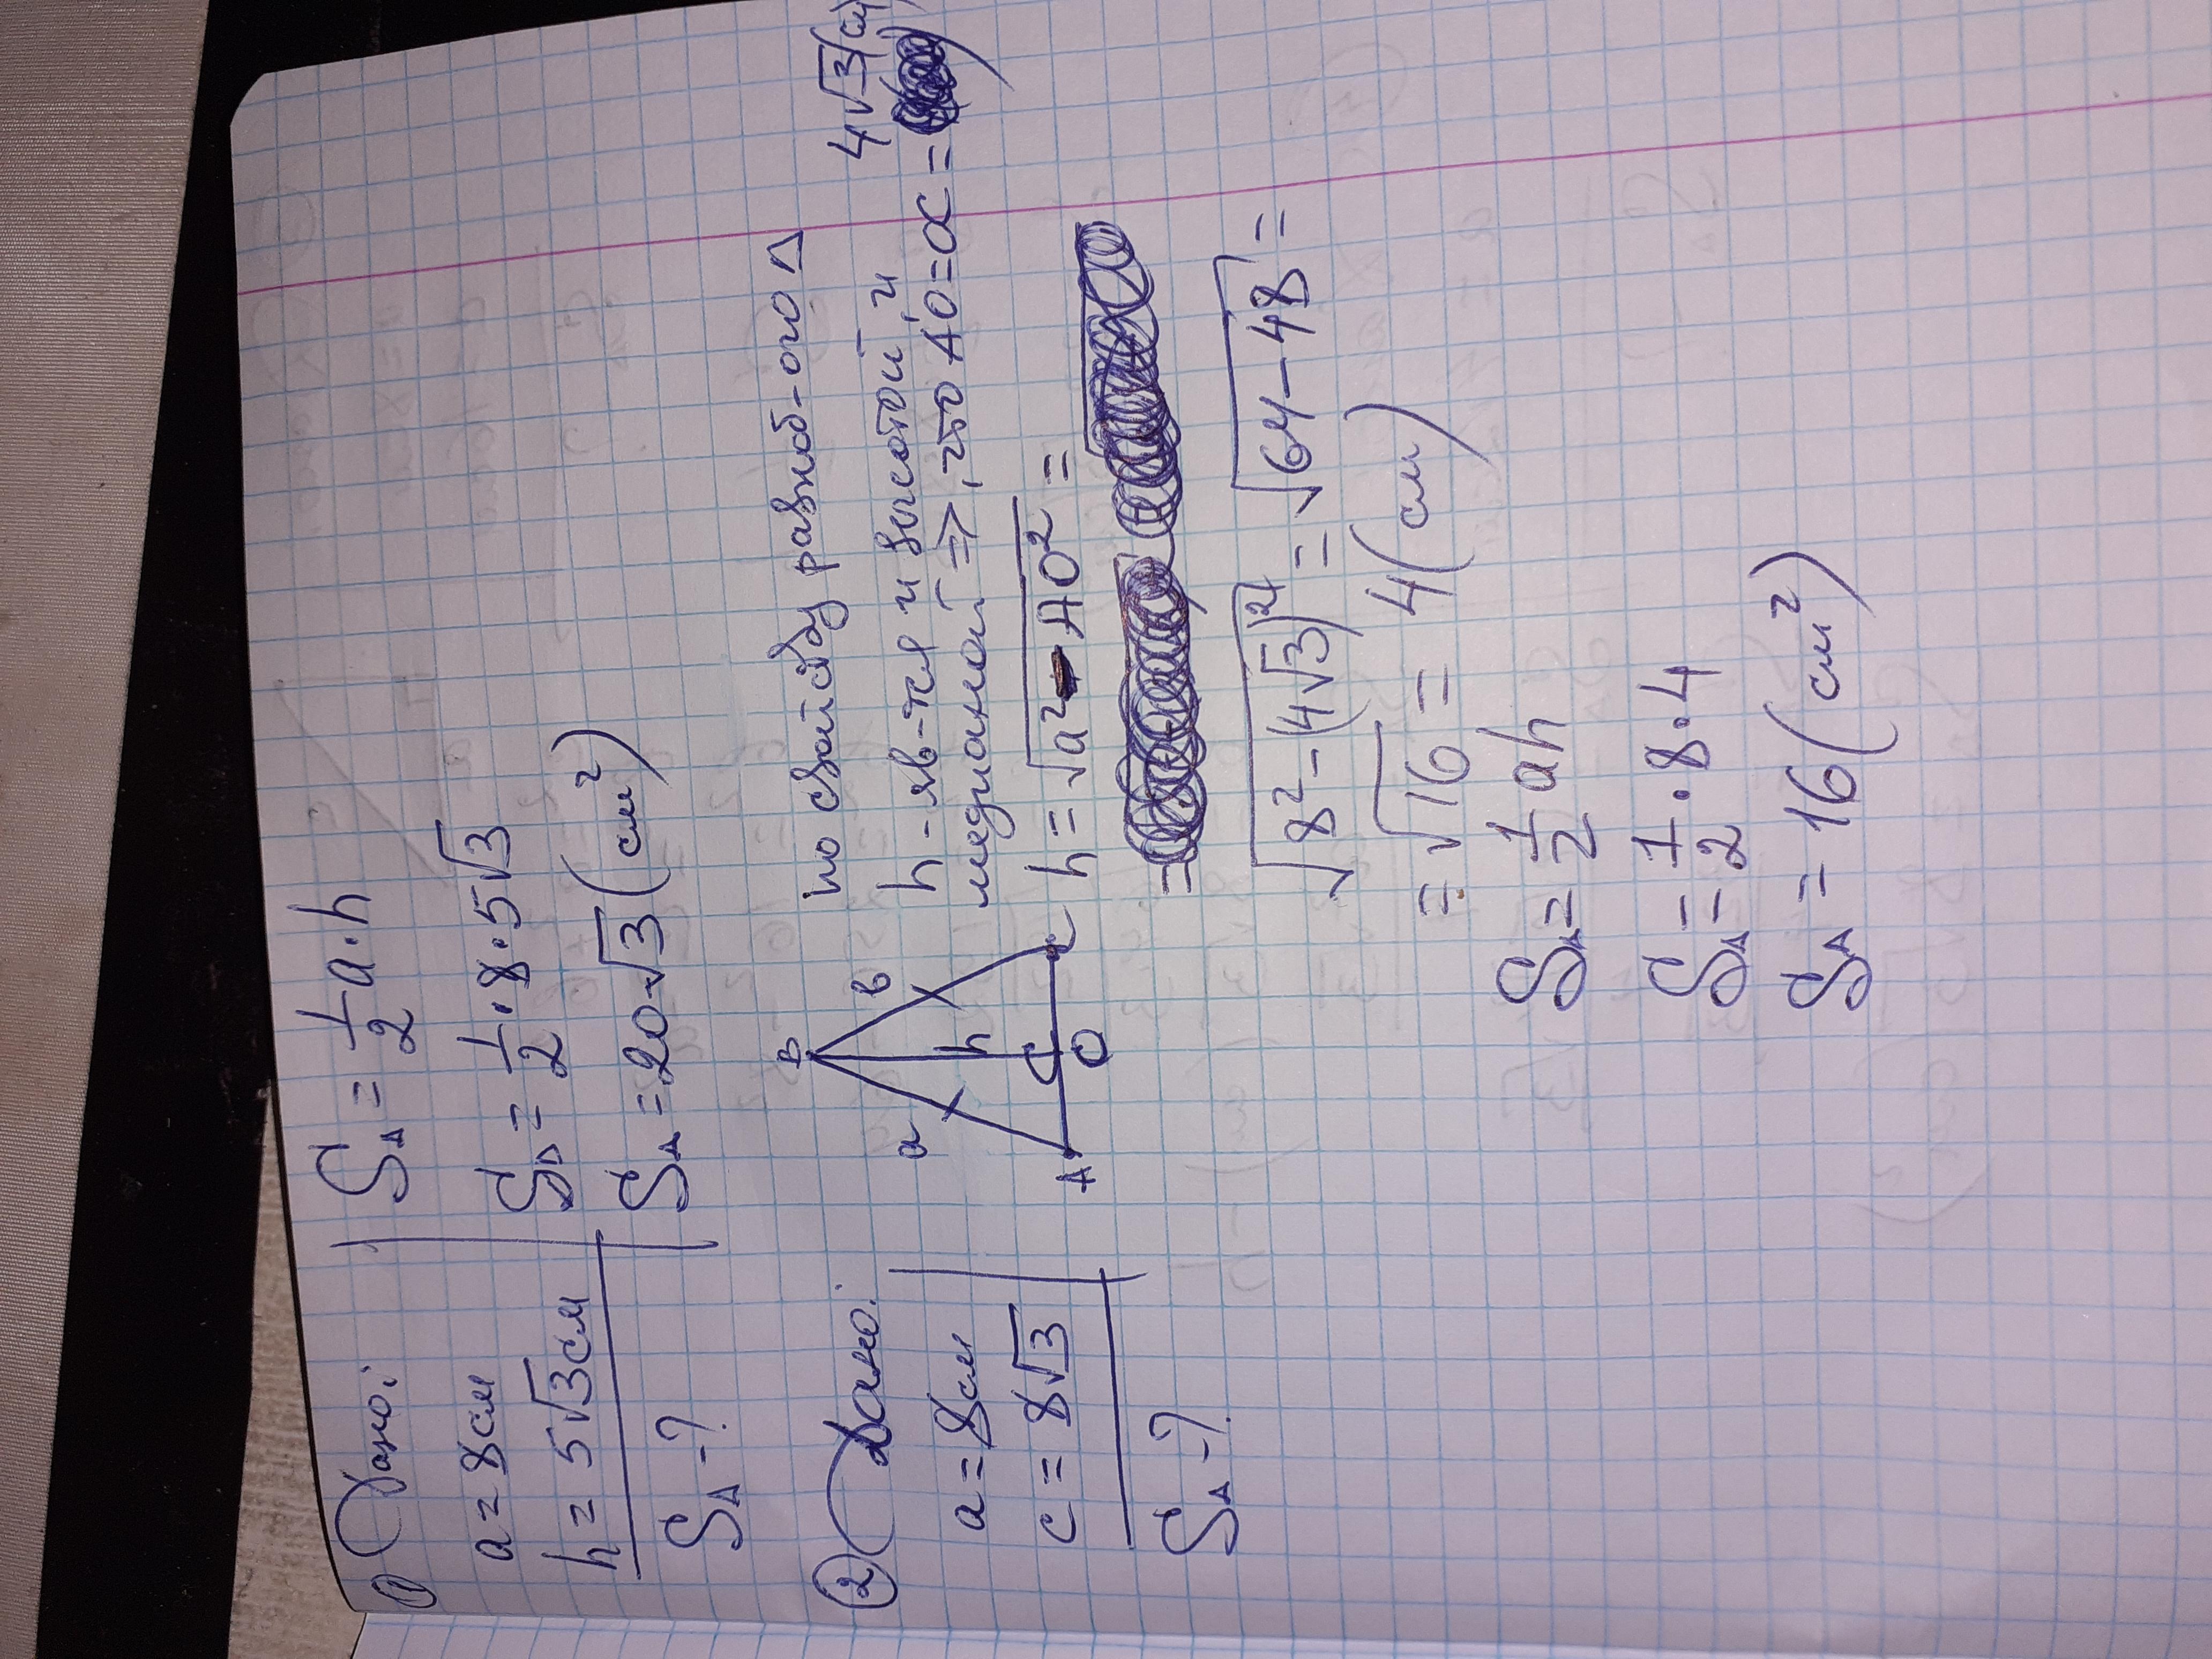 ① Дано:
a = 8см
h = 5√3см
S△ - ?
S△ = 1/2 a·h
S△ = 1/2 · 8 · 5√3
S△ = 20√3 (см²)
② Дано:
a = 8см
c = 8√3
S△ - ?
B
a в
h
A O C
по свойству равноб-ого △
h - яв-тся и высотой, и
медианой => , что AO = OC = 4√3 (см)
h = √(a² - AO²) =
=
√(8² - (4√3)²) = √(64 - 48) =
= √16 = 4 (см)
S△ = 1/2 ah
S△ = 1/2 · 8 · 4
S△ = 16 (см²)